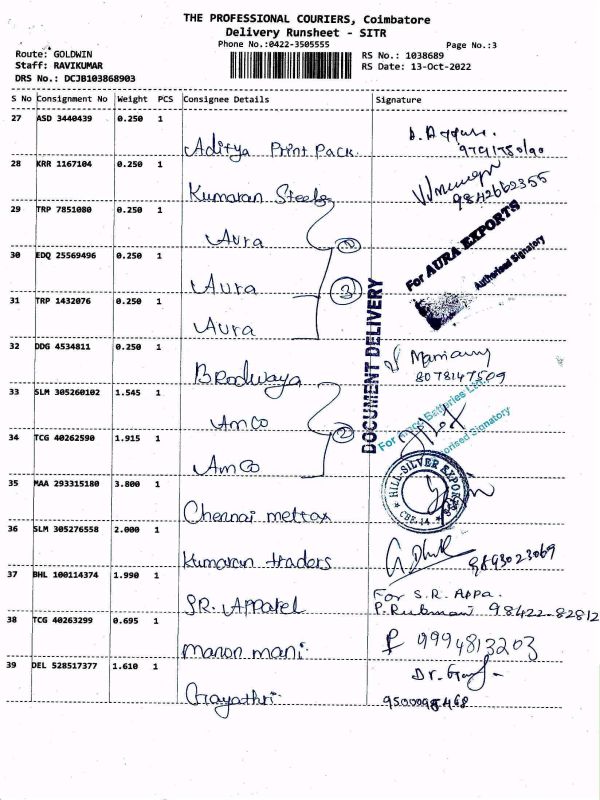 THE PROFESSIONAL COURIERS, Coimbatore
Delivery Runsheet - SITR
Phone No.:0422-3505555 Page No.:3
Route: GOLDWIN RS No.: 1038689
Staff: RAVIKUMAR RS Date: 13-Oct-2022
DRS No.: DCJB103868903
S No Consignment No Weight PCS Consignee Details Signature
27 ASD 3440439 0.250 1
Aditya Print Pack.
28 KRR 1167104 0.250 1
Kumaran Steels 9842662355
29 TRP 7851080 0.250 1
Aura
For AURA EXPORTS
Authorised Signatory
30 EDQ 25569496 0.250 1
Aura 3
31 TRP 1432076 0.250 1
Aura
DOCUMENT DELIVERY
32 DDG 4534811 0.250 1
Brodwaya 8078147509
33 SLM 305260102 1.545 1
Amco 2
For Amco Batteries Ltd.
Authorised Signatory
34 TCG 40262590 1.915 1
Amco
35 MAA 293315180 3.800 1
Chennai mettax
HILL-SILVER EXPORTS
CBE.14
36 SLM 305276558 2.000 1
Kumaran traders 9893023069
37 BHL 100114374 1.990 1
For S.R. Appa.
SR. Apparel P. Rukmani 98422-82812
38 TCG 40263299 0.695 1
Manon mani 9994813203
39 DEL 528517377 1.610 1
Gayathri